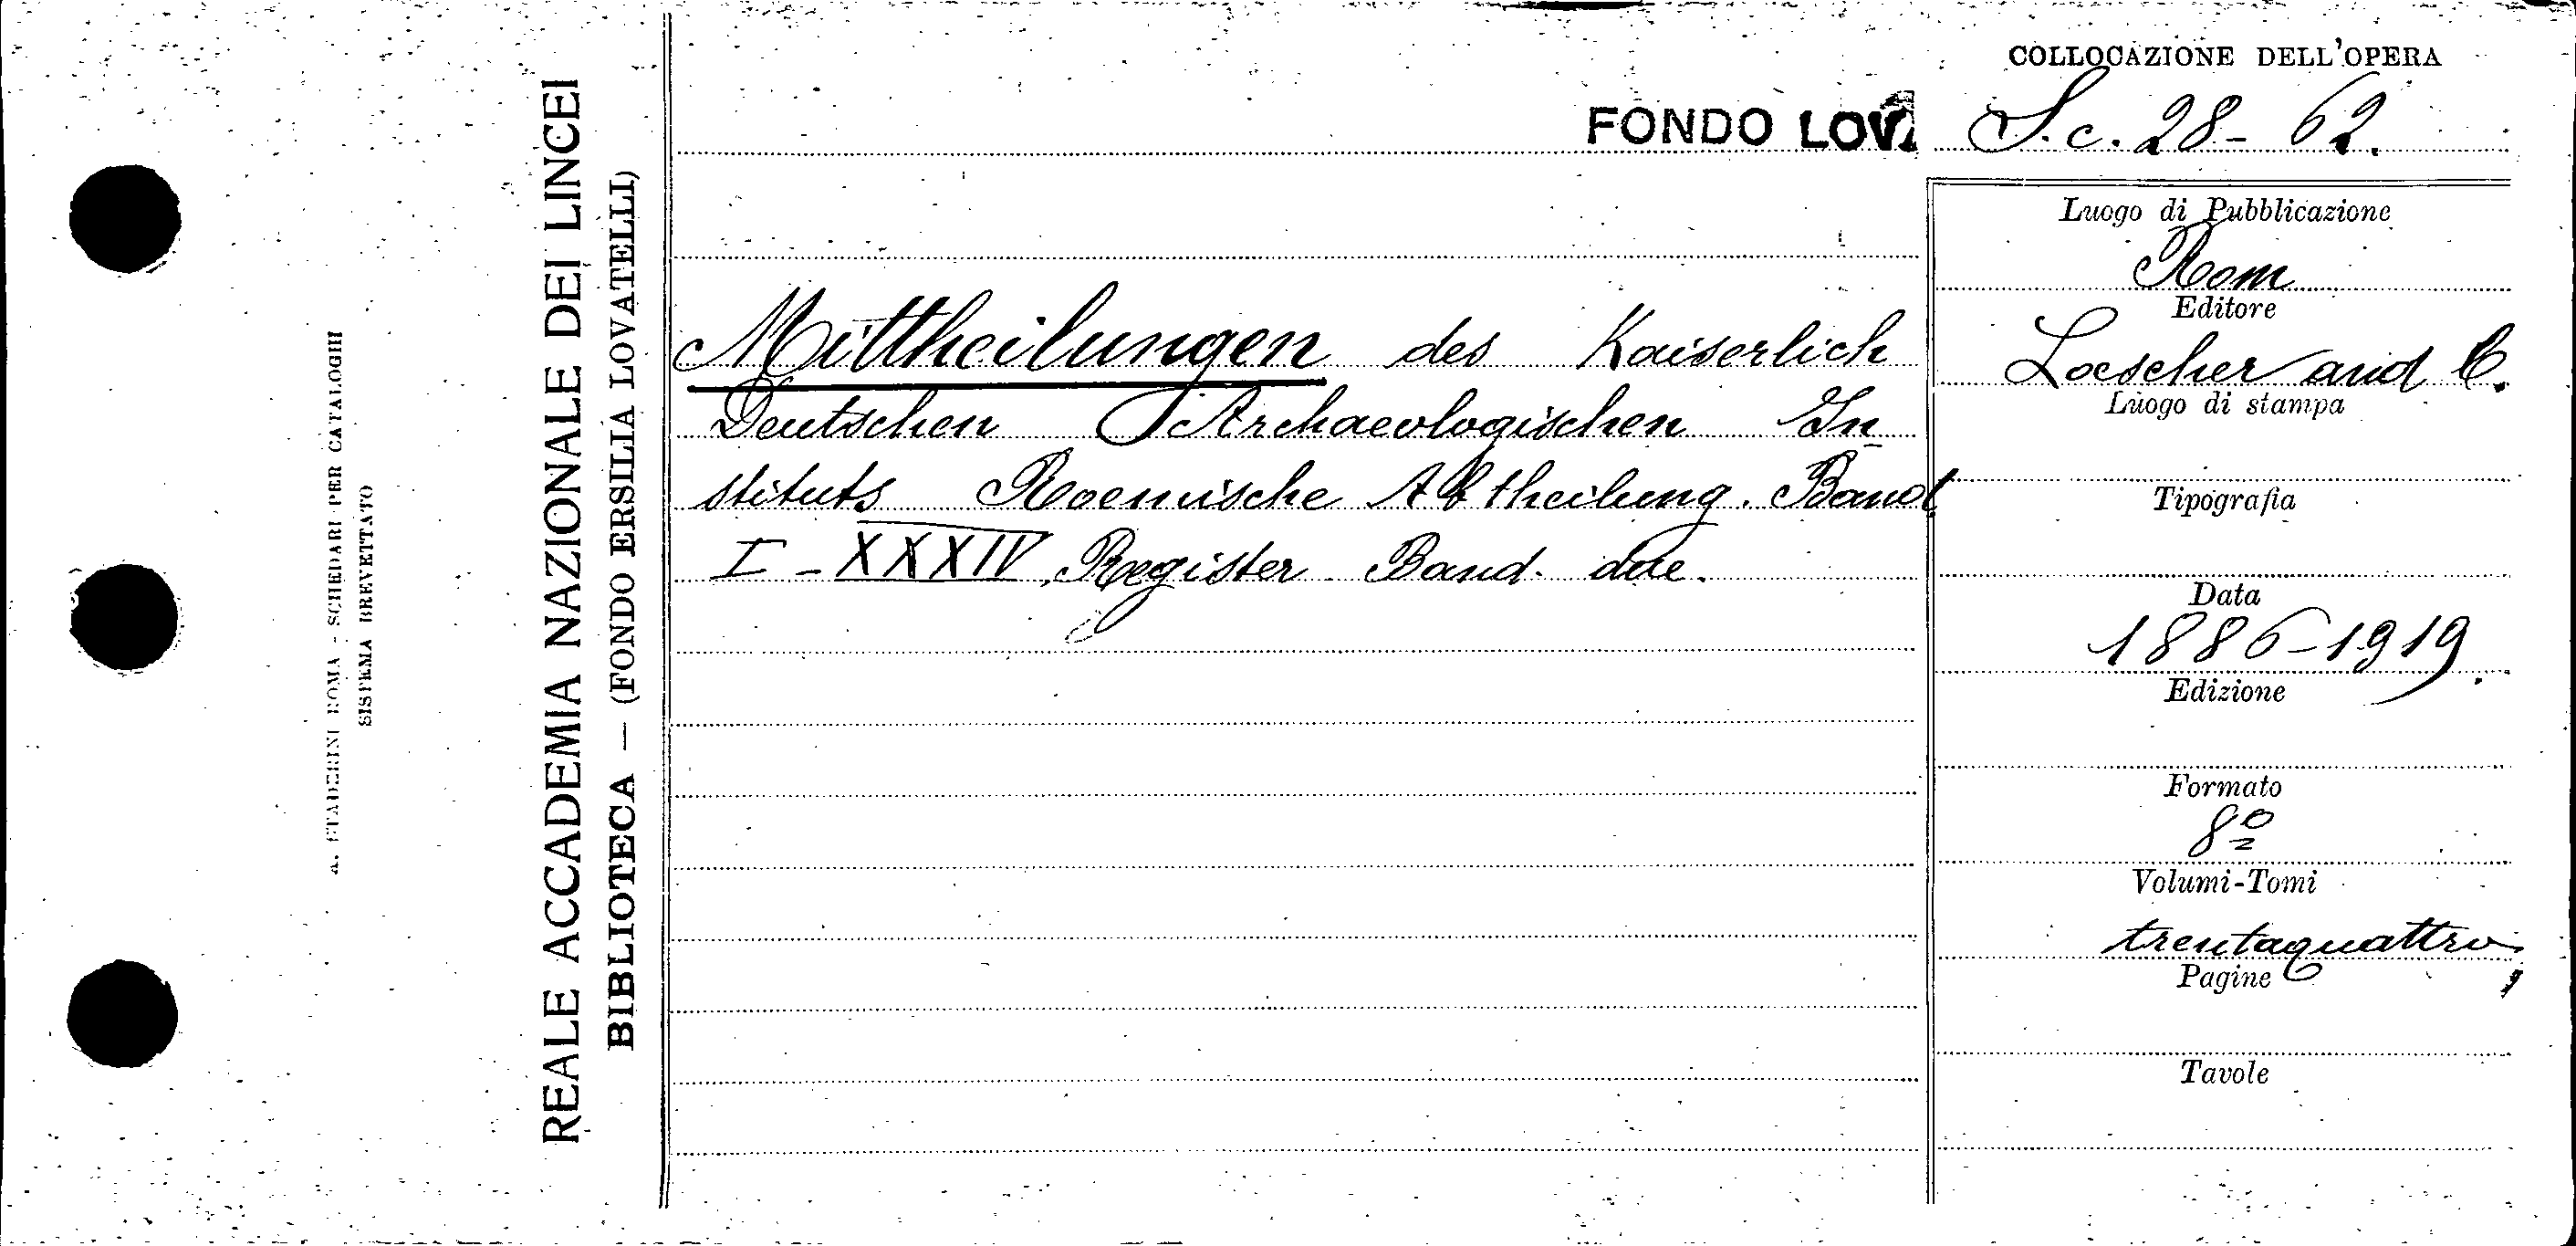 A. STADERINI ROMA - SCHEDARI PER CATALOGHI
SISTEMA BREVETTATO
REALE ACCADEMIA NAZIONALE DEI LINCEI
BIBLIOTECA — (FONDO ERSILIA LOVATELLI)
FONDO LOV
Mittheilungen des Kaiserlich
Deutschen Archaeologischen In
stituts Roemische Abtheilung. Band
I - XXXIV, Register Band. due.
COLLOCAZIONE DELL'OPERA
S. c. 28 - 62.
Luogo di Pubblicazione
Rom
Editore
Loescher and C.
Luogo di stampa
Tipografia
Data
1886-1919.
Edizione
Formato
8º
Volumi-Tomi
trentaquattro
Pagine
Tavole